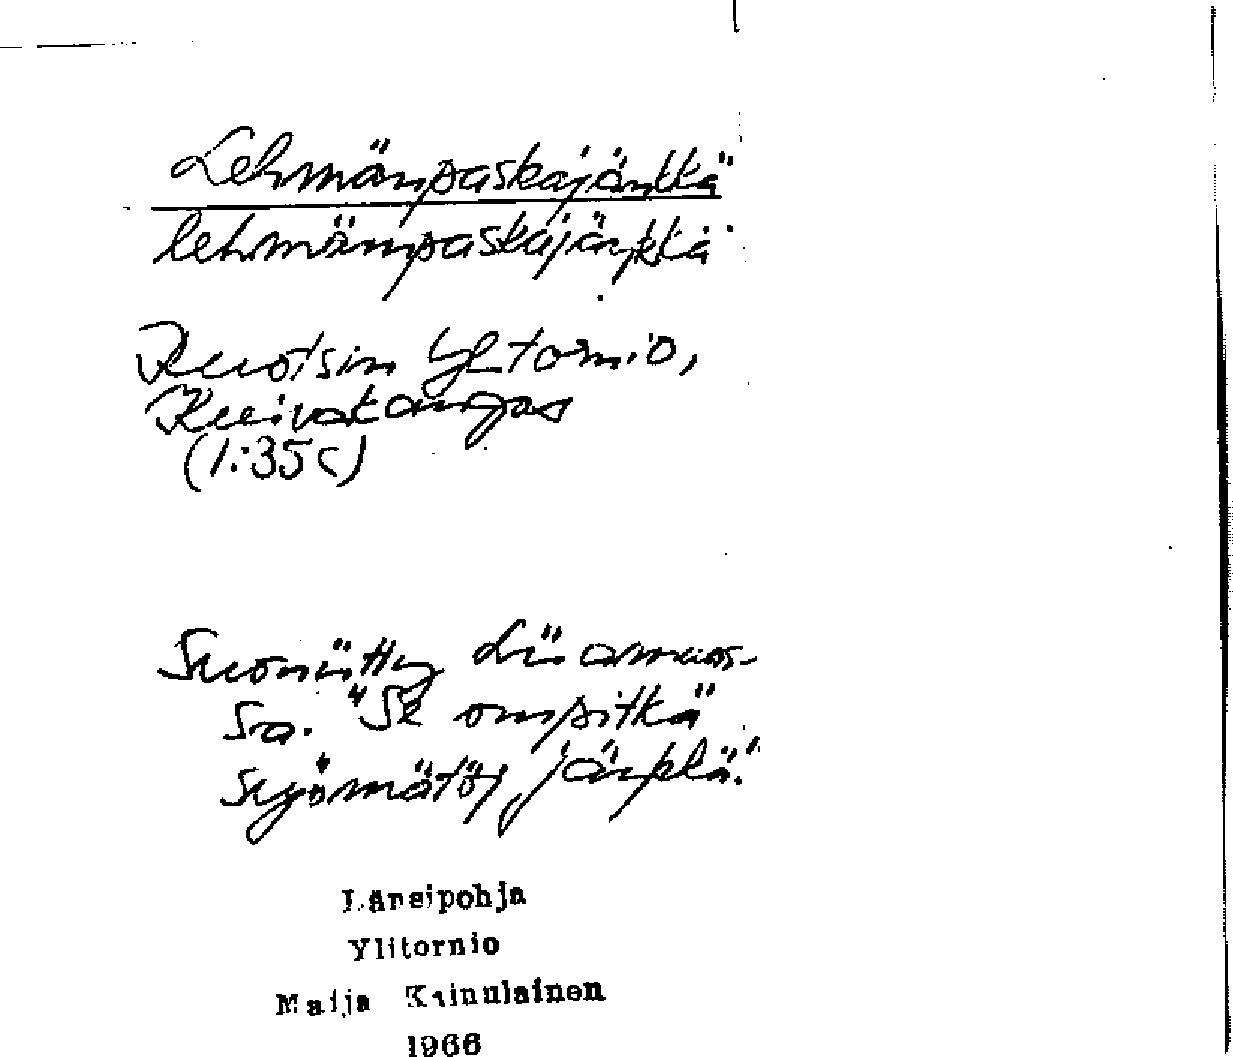 Lehmänpaskajänkkä
lehmämpaskajäŋkkä
Ruotsin Ylitornio,
Kuivakangas
(1:35c)
Suoniitty Liiamaas-
sa. "Se ompitkä
syömätöj jäŋkkä."
Länsipohja
Ylitornio
Maija Kainulainen
1966